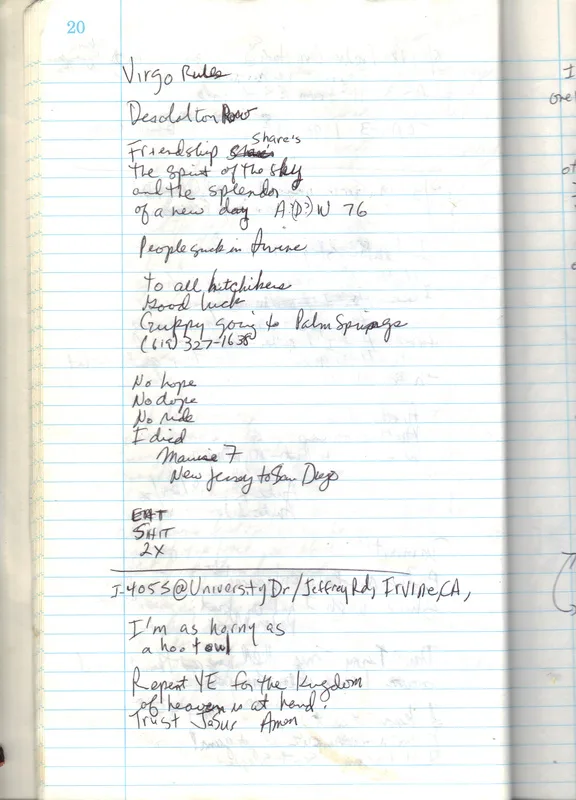 20
Virgo Rules
Desolation Row
Friendship Share's
the spirit of the sky
and the splendor
of a new day A(D?)W 76
People suck in Irvine
To all hitchikers
Good luck
Guppy going to Palm Springs
(619) 327-1638
No hope
No dope
No ride
I died
7
New Jersey to San Diego
EAT
SHIT
2X
I-405S@University Dr/Jeffrey Rd, Irvine, CA,
I'm as horny as
a hoot owl
Repent YE for the kingdom
of heaven is at hand.
Trust Jasus Amon
I